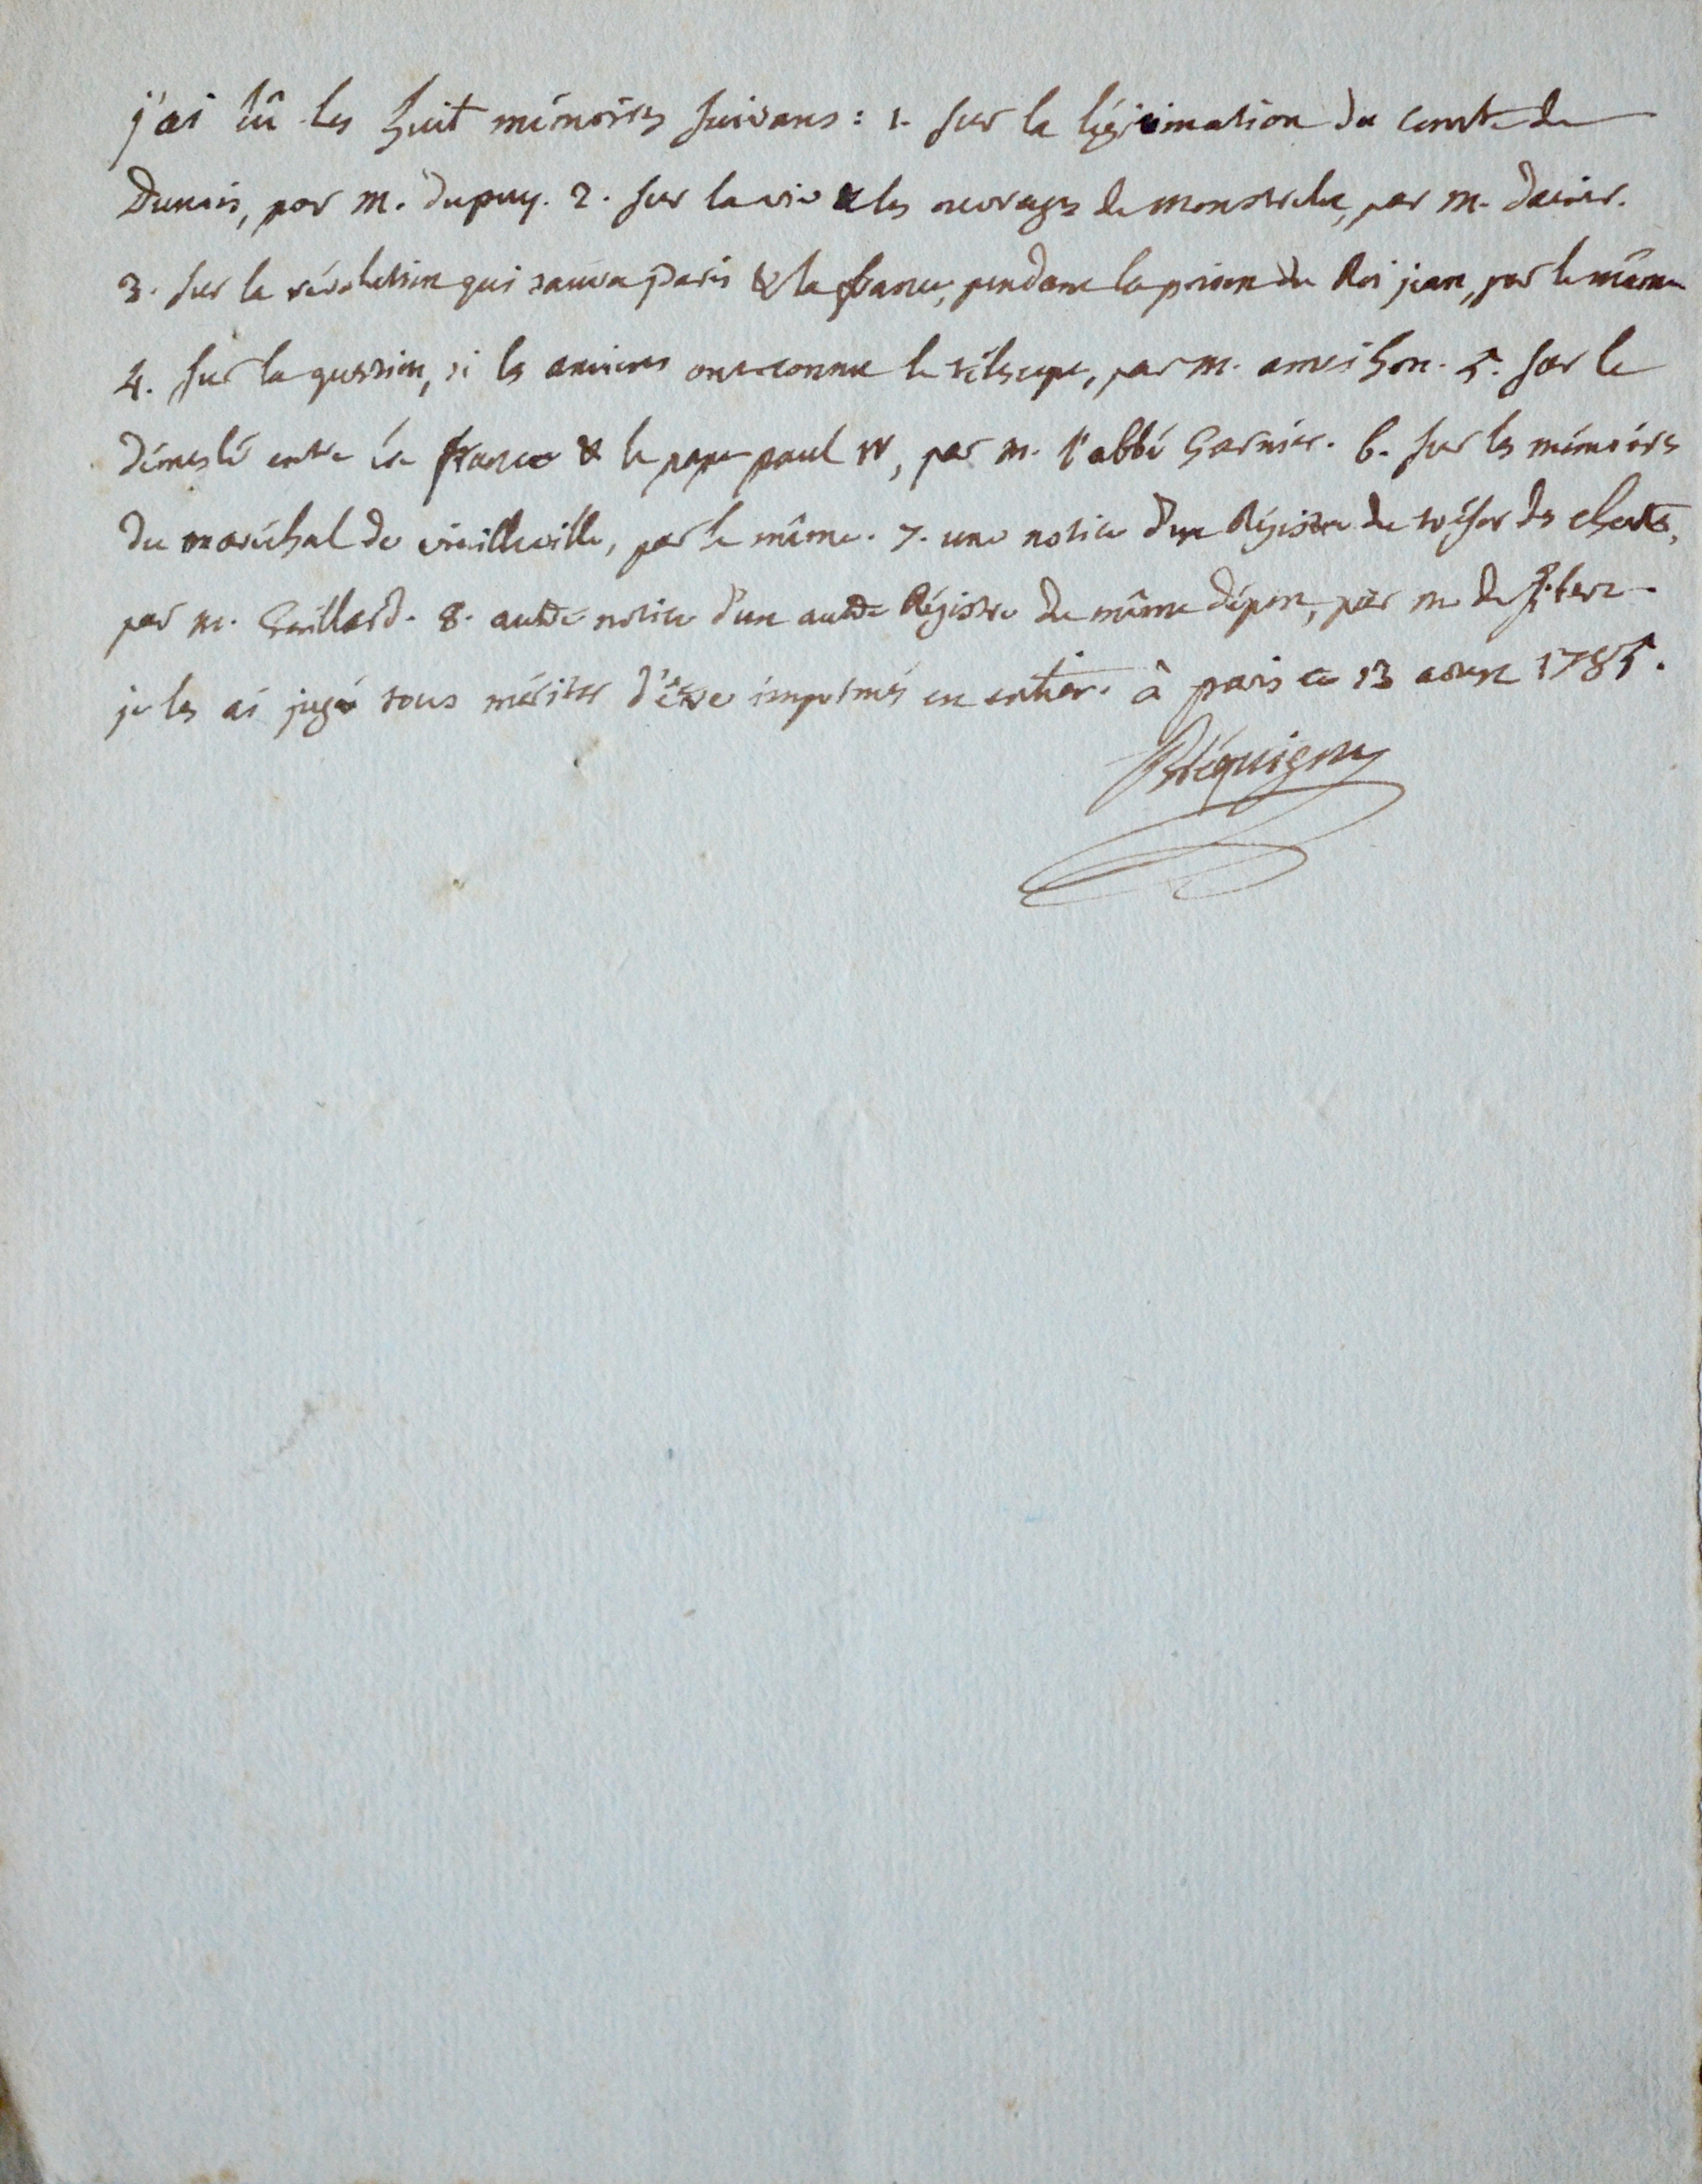 j'ai lû les huit mémoires suivans : 1. sur la légitimation du comte de
Dunois, par m. dupuy. 2. sur la vie & les ouvrages de monstrelet, par m. dacier.
3. sur la révolution qui sauva paris & la france, pendant la prison du Roi jean, par le même
4. sur la question, si les anciens ont connu le télescope, par m. ameilhon. 5. sur le
démeslé entre la france & le pape paul IV, par m. l'abbé Garnier. 6. sur les mémoires
du maréchal de vieilleville, par le même. 7. une notice d'un Régistre du trésor des chartes,
par m. Gaillard. 8. autre notice d'un autre Régistre du même dépost, par m. de
je les ai jugé tous mériter d'être imprimés en entier. à paris ce 13 aoust 1785.
Bréquigny